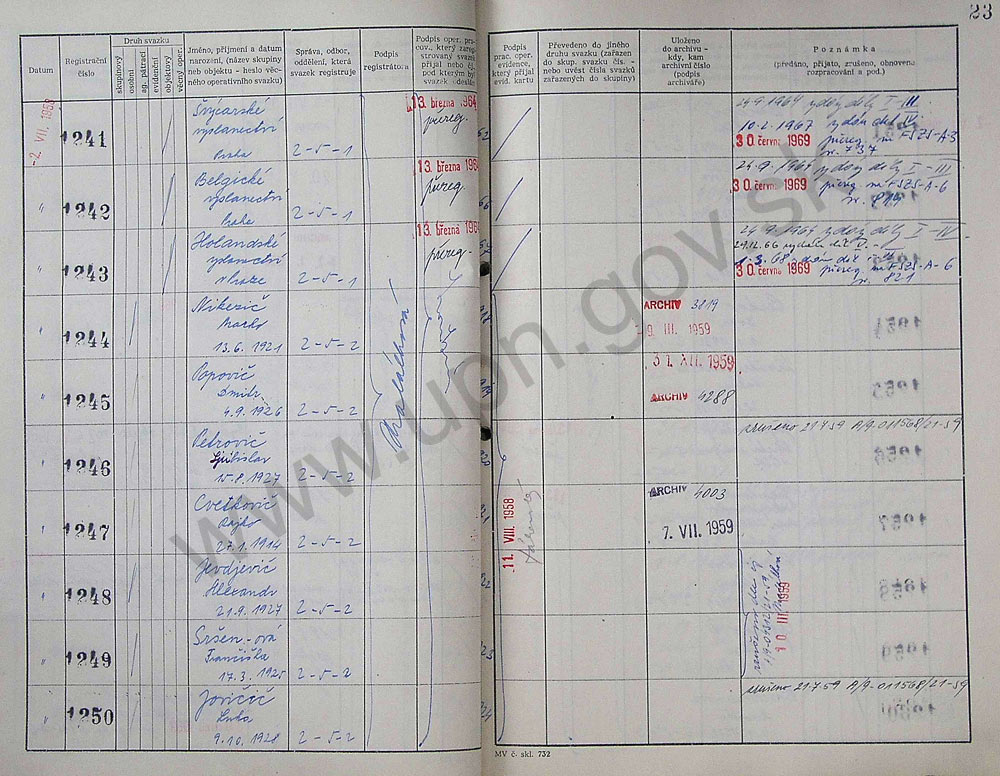 23
Datum
Registrační číslo
Druh svazku
skupinový
osobní
ag. pátrací
evidenční
objektový
věcný oper.
Jméno, příjmení a datum
narození, (název skupiny
neb objektu - heslo věc-
ného operativního svazku)
Správa, odbor,
oddělení, která
svazek registruje
Podpis
registrátora
Podpis oper. pra-
cov., který zareg-
istrovaný svazek
přijal nebo čís.
pod kterým byl
svazek odeslán
Podpis
prac. oper.
evidence,
který přijal
evid. kartu
Převedeno do jiného
druhu svazku (zařazen
do skup. svazku čís. -
nebo uvést čísla svazků
zařazených do skupiny)
Uloženo
do archivu -
kdy, kam
archivní číslo
(podpis
archiváře)
Poznámka
(předáno, přijato, zrušeno, obnoveno
rozpracování a pod.)
-2. VII. 1958
1241
Švýcarské
vyslanectví
Praha
2-5-1
13. března 1964
přereg.
24.9.1964 vydány díly I - III
10.2.1967 vydán díl IV.
30. června 1969 přereg. na FSZS-A-3
1242
Belgické
vyslanectví
Praha
2-5-1
13. března 1964
přereg.
24.9.1964 vydány díly I - III
30. června 1969 přereg. na FSZS-A-6
1243
Holandské
vyslanectví
v Praze
2-5-1
13. března 1964
přereg.
24.9.1964 vydány díly I - IV
30. června 1969 přereg. na FSZS-A-6
č. 821
1244
Nikezič
Marko
13.6.1921
2-5-2
ARCHIV 3819
-9. III. 1959
1245
Popovič
Dmitr
4.9.1926
2-5-2
31. XII. 1959
ARCHIV 4288
1246
Petrovič
Ljubislav
15.8.1927
2-5-2
zrušeno 21.7.59 A/9-011568/21-59
1247
Cvetkovič
Rajko
27.1.1914
2-5-2
11. VIII. 1958
ARCHIV 4003
7. VII. 1959
1248
Jevdjevič
Alexandr
21.9.1927
2-5-2
1249
Sršen-ová
Frančiška
17.3.1925
2-5-2
10. III. 1959
1250
Jovičič
Luka
9.10.1928
2-5-2
zrušeno 21.7.59 A/9-011568/21-59
MV č. skl. 732
www.upn.gov.sk